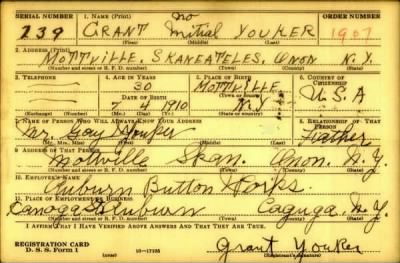 SERIAL NUMBER 1. NAME (Print) ORDER NUMBER
239 GRANT no initial YOUKER 1907
(First) (Middle) (Last)
2. ADDRESS (Print)
MOTTVILLE, SKANEATELES, ONON N.Y.
(Number and street or R. F. D. number) (Town) (County) (State)
3. TELEPHONE 4. AGE IN YEARS 5. PLACE OF BIRTH 6. COUNTRY OF CITIZENSHIP
30 MOTTVILLE U.S.A
DATE OF BIRTH (Town or county)
7 4 1910 N.Y
(Exchange) (Number) (Mo.) (Day) (Yr.) (State or country)
7. NAME OF PERSON WHO WILL ALWAYS KNOW YOUR ADDRESS 8. RELATIONSHIP OF THAT PERSON
Mr. Gay Youker Father
(Mr., Mrs., Miss) (First) (Middle) (Last)
9. ADDRESS OF THAT PERSON
Mottville Skan. Onon. N.Y.
(Number and street or R. F. D. number) (Town) (County) (State)
10. EMPLOYER'S NAME
Auburn Button Works.
11. PLACE OF EMPLOYMENT OR BUSINESS
Canoga St Auburn Cayuga, N.Y.
(Number and street or R. F. D. number) (Town) (County) (State)
I AFFIRM THAT I HAVE VERIFIED ABOVE ANSWERS AND THAT THEY ARE TRUE.
REGISTRATION CARD
D. S. S. Form 1 (over) 16—17105 Grant Youker
(Registrant's signature)